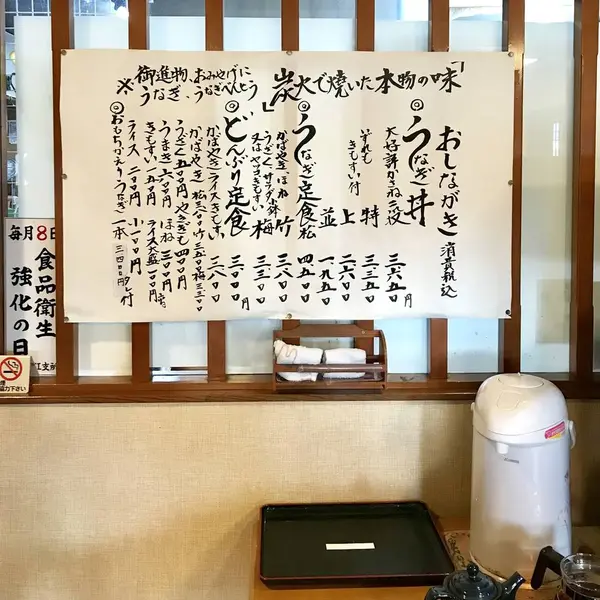 「炭火で焼いた本物の味」
おしながき 消費税込
◎うなぎ丼
大好評かさね二段 三六五〇円
いずれもきもすい付
特 三三五〇
上 二六〇〇
並 一、九五〇
◎うなぎ定食
松 四五〇〇
竹 三八〇〇
梅 三三〇〇
かばやき、ほね
うざく、サラダ、小鉢
又はやっこきもすい
◎どんぶり定食 三〇〇〇円
かばやきライスきもすい 二八〇〇
かばやき 松三八〇〇竹三五〇〇梅二三〇〇
うざく 七五〇円 やききも四〇〇円
うまき 六〇〇円 ほね 三〇〇円
きもすい 一五〇円 ライス大盛一〇〇円
ライス 二〇〇円 小一〇〇円
◎おもちかえりうなぎ 一本 二四〇〇 タレ付
※御進物、おみやげに
うなぎ、うなぎべんとう
毎月8日
食品衛生
強化の日
協力下さい